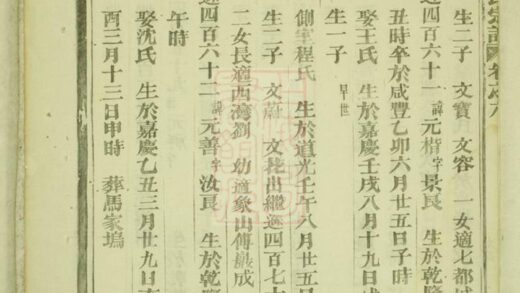 氏宗譜 卷之六
生二子 文寶 文容 一女適七都
四百六十一 諱元楷 字景良 生於乾隆
丑時卒於咸豐乙卯六月廿五日子時
娶王氏 生於嘉慶壬戌八月十九日
生一子 早世
側室程氏 生於道光壬午八月廿五
生二子 文蔚 文花出繼 四百七十
二女長適西灣劉 幼適象山傅 成
四百六十二 諱元善 字汝良 生於乾
午時
娶沈氏 生於嘉慶乙丑三月廿九日
酉三月十三日申時 葬馬家塢